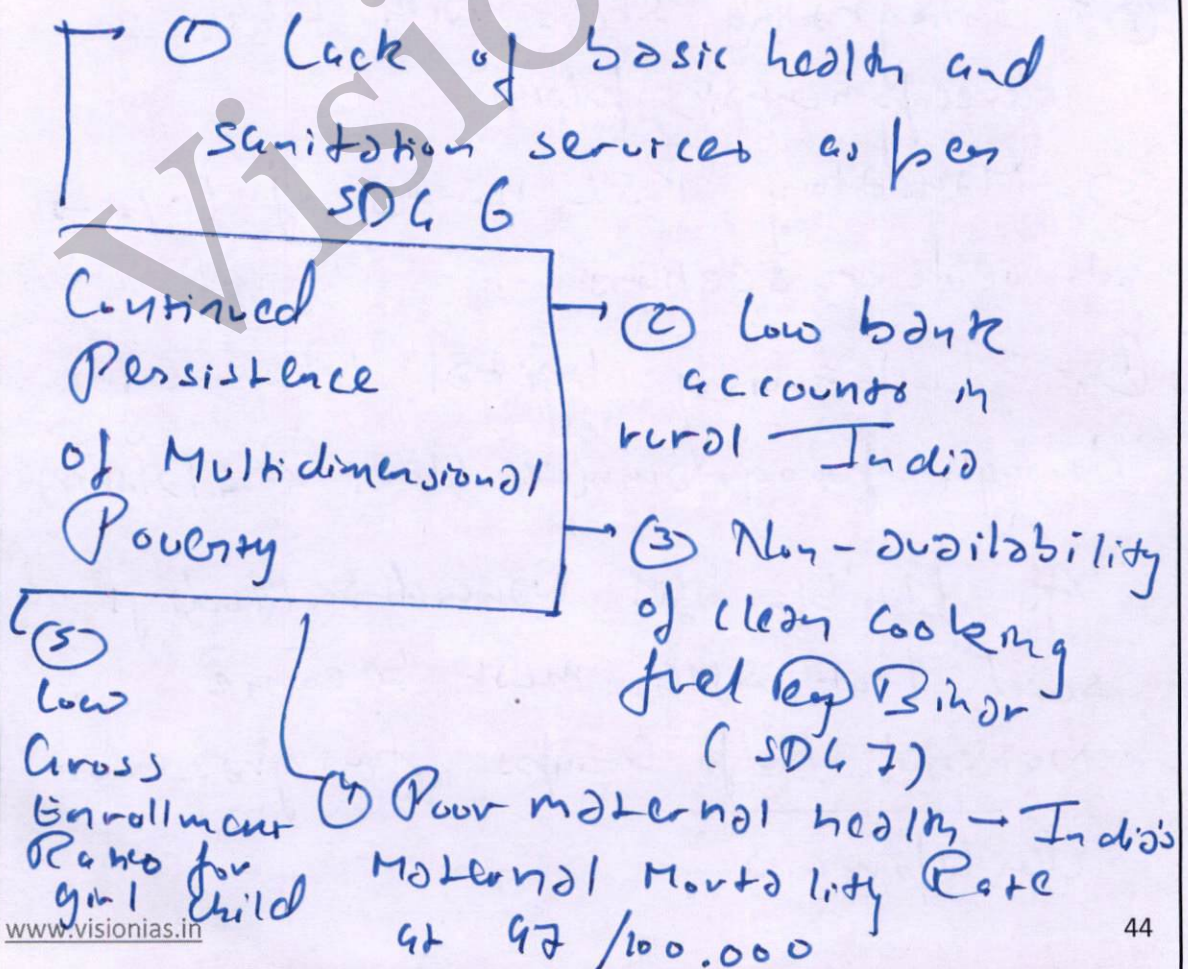 ① Lack of basic health and
sanitation services as per
SDG 6
Continued
Persistence
of Multidimensional
Poverty
② Low bank
accounts in
rural India
③ Non-availability
of clean cooking
fuel eg Bihar
(SDG 7)
④ Poor maternal health → India's
Maternal Mortality Rate
at 97 /100.000
⑤
Low
Gross
Enrollment
Ratio for
girl child
www.visionias.in
44